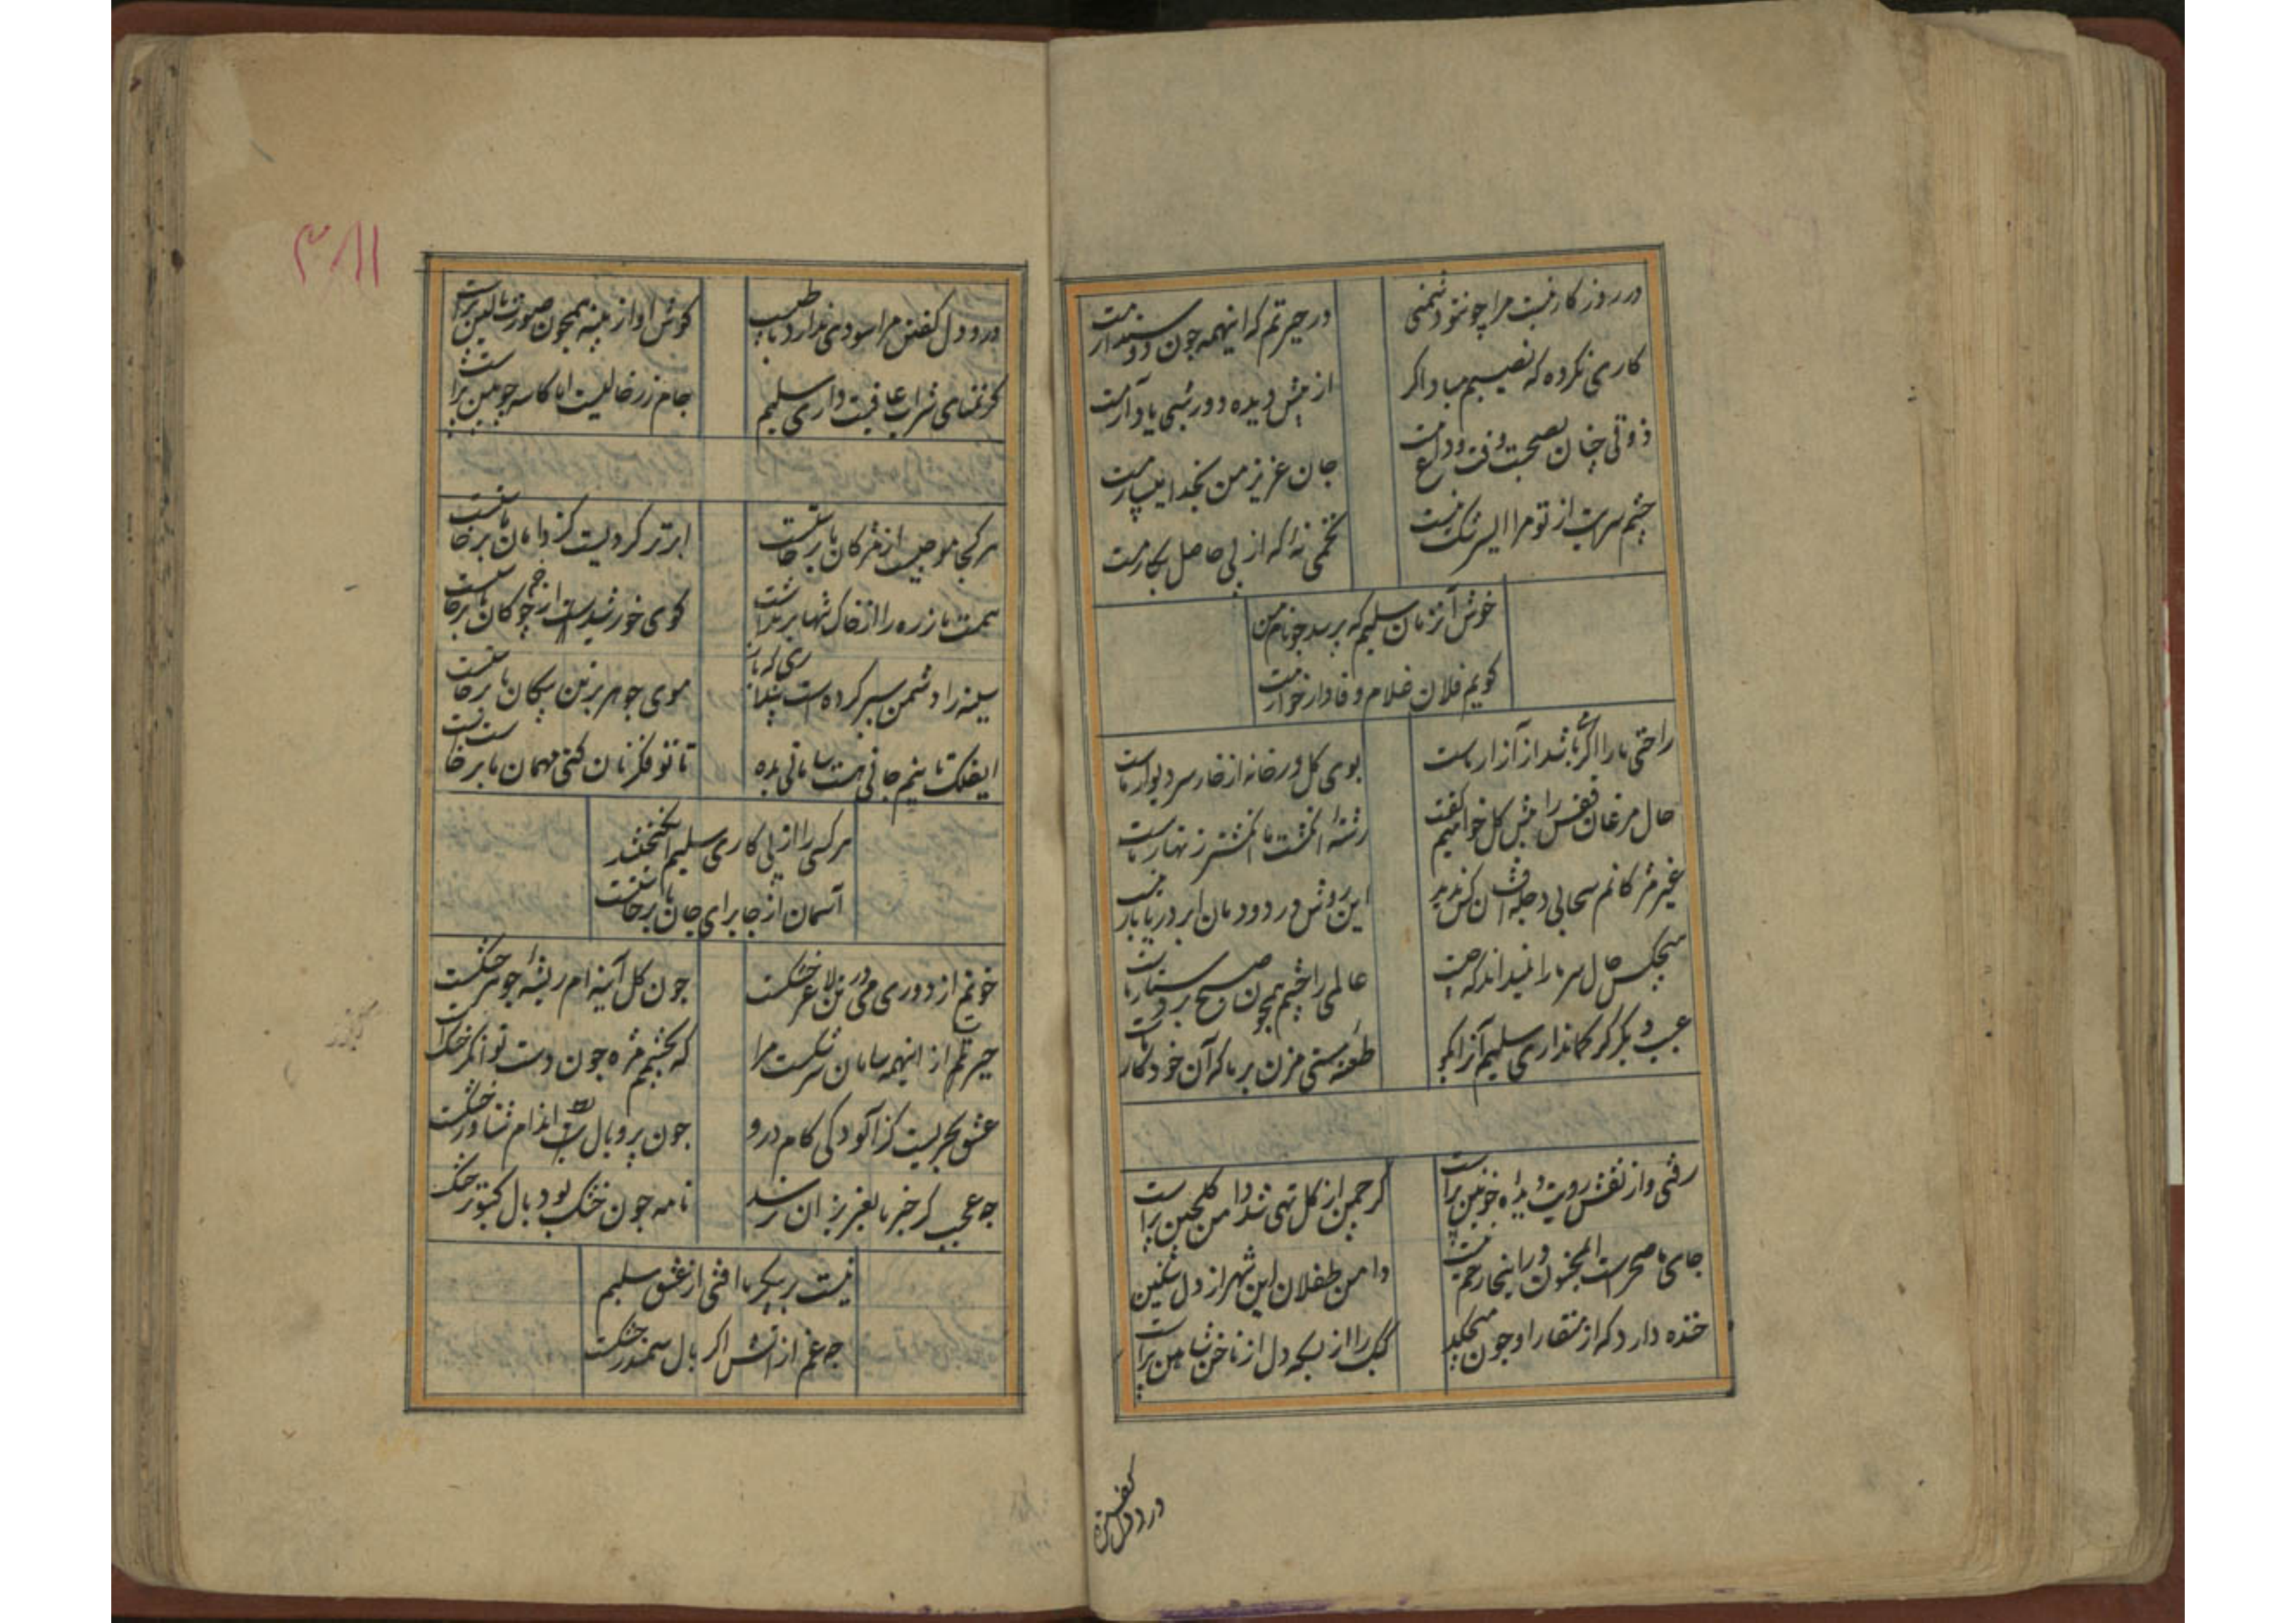 در روزگار نیست مرا چونتو دشمنی
در حیرتم که اینهمه چون دوستدارمت
کاری نکرده که نصیبم مباد اگر
از پیش دیده دور شبی یاد آرمت
ذوقی چنان بصحبت وقت وداع نیست
جان عزیز من بخدا میسپارمت
چشم سرت از تو مرا ای سرشک نیست
تخمی نه که از پی حاصل بکارمت
خوش آنزمان سلیم که پرسد چو نام من
کویم فلان غلام وفادار خوارمت
راحتی ما را اگر باشد از آزار ماست
بوی کل در خانه از خار سر دیوار ماست
حال مرغان قفس را پیش کل خواهیم گفت
رشته انکشت ما انکشتر زنهار ماست
غیر مژکانم سحابی دجله افشان کس ندید
این روش در دودمان ابر دریا بار ماست
هیچکس حال سر ما را نمیداند که چیست
عالمی را چشم همچون صبح بر دستار ماست
عیب دیکر کر کمانداری سلیم آنرا بکو
طعنه مستی مزن بر ما که آن خود کار ماست
رفتی و از نقش رویت دیده خونین پر است
کر چمن از کل تهی شد دامن کلچین پر است
جای ما صحراست ای مجنون در اینجا رحم نیست
دامن طفلان این شهر از دل سنگین پر است
خنده دارد که از منقار او خون میچکد
کبک را از بسکه دل از ناخن شاهین پر است
درد دل گفتن مرا
۳۸۱۱
درد دل کفتن مرا سودی ندارد با طبیب
کوش او از پنبه همچون صورت بالین پر است
کر تمنای شراب عافیت داری سلیم
جام زر خالیست اما کاسه چوبین پر است
هر کجا موجیست از مژکان ما برخاستست
ابر تر کردیست کز دامان ما برخاستست
همت ما ذره را از خاک تنها برنداشت
کوی خورشید است از چوکان ما برخاستست
سینه را دشمن سپر کرده است پنداری که باز
موی جوهر بر تن پیکان ما برخاستست
ایفلک تا نیم جانی هست سامانی بده
تا تو فکر نان کنی مهمان ما برخاستست
هر کسی را از پی کاری سلیم انکیختند
آسمان از جا برای جان ما برخاستست
خونم از دوری می در تن لاغر خشکست
چون کل آینه ام ریشه جوهر خشکست
حیرتم از اینهمه سامان سرشکست مرا
که بچشمم مژه چون دست توانکر خشکست
عشق بحریست کز آلودکی کام درو
چون پر و بال بط اندام شناور خشکست
چه عجب کر خبر ما بعزیزان نرسد
نامه چون خشک بود بال کبوتر خشکست
نیست بر پیکر ما آفتی از عشق سلیم
چه غم از آتش اکر بال سمندر خشکست